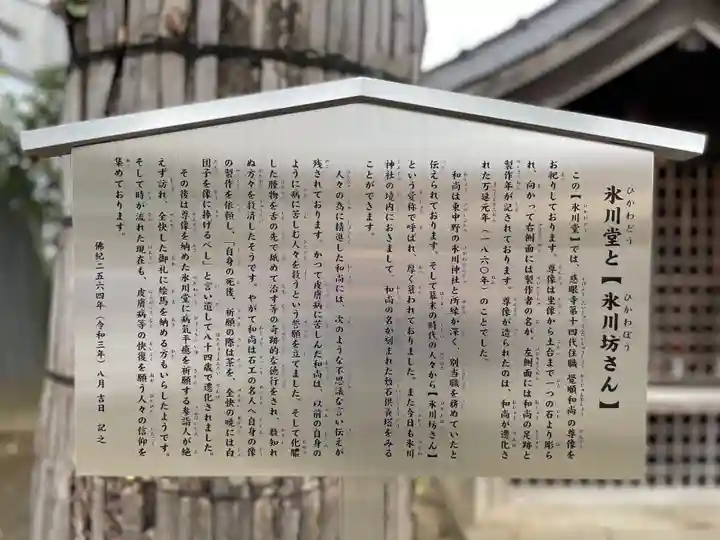 氷川堂と【氷川坊さん】
ひかわどう ひかわぼう
この【氷川堂】では、慈眼寺第十四代住職 覚順和尚の尊像を
お祀りしております。尊像は坐像から土台まで一つの石より彫ら
れ、向かって右側面には製作者の名が、左側面には和尚の足跡と
製作年が記されております。尊像が造られたのは、和尚が遷化さ
れた万延元年（一八六〇年）のことでした。
和尚は東中野の氷川神社と所縁が深く、別当職を務めていたと
伝えられております。そして幕末の時代の人々から【氷川坊さん】
という愛称で呼ばれ、厚く慕われておりました。また今日も氷川
神社の境内におきまして、和尚の名が刻まれた敷石供養塔をみる
ことができます。
人々の為に精進した和尚には、次のような不思議な言い伝えが
残されております。かつて皮膚病に苦しんだ和尚は、以前の自身の
ように病に苦しむ人々を救うという誓願を立てました。そして化膿
した腫物を舌の先で舐めて治す等の奇跡的な徳行をされ、数知れ
ぬ方々を救済したそうです。やがて和尚は石工の名人へ自身の像
の製作を依頼し、「自身の死後、祈願の際は茶を、全快の暁には白
団子を像に捧げるべし」と言い遺して八十四歳で遷化されました。
その後は尊像を納めた氷川堂に病気平癒を祈願する参詣人が絶
えず訪れ、全快した御礼に絵馬を納める方もいらしたようです。
そして時が流れた現在も、皮膚病等の快復を願う人々の信仰を
集めております。
佛紀二五六四年（令和三年）八月 吉日 記之